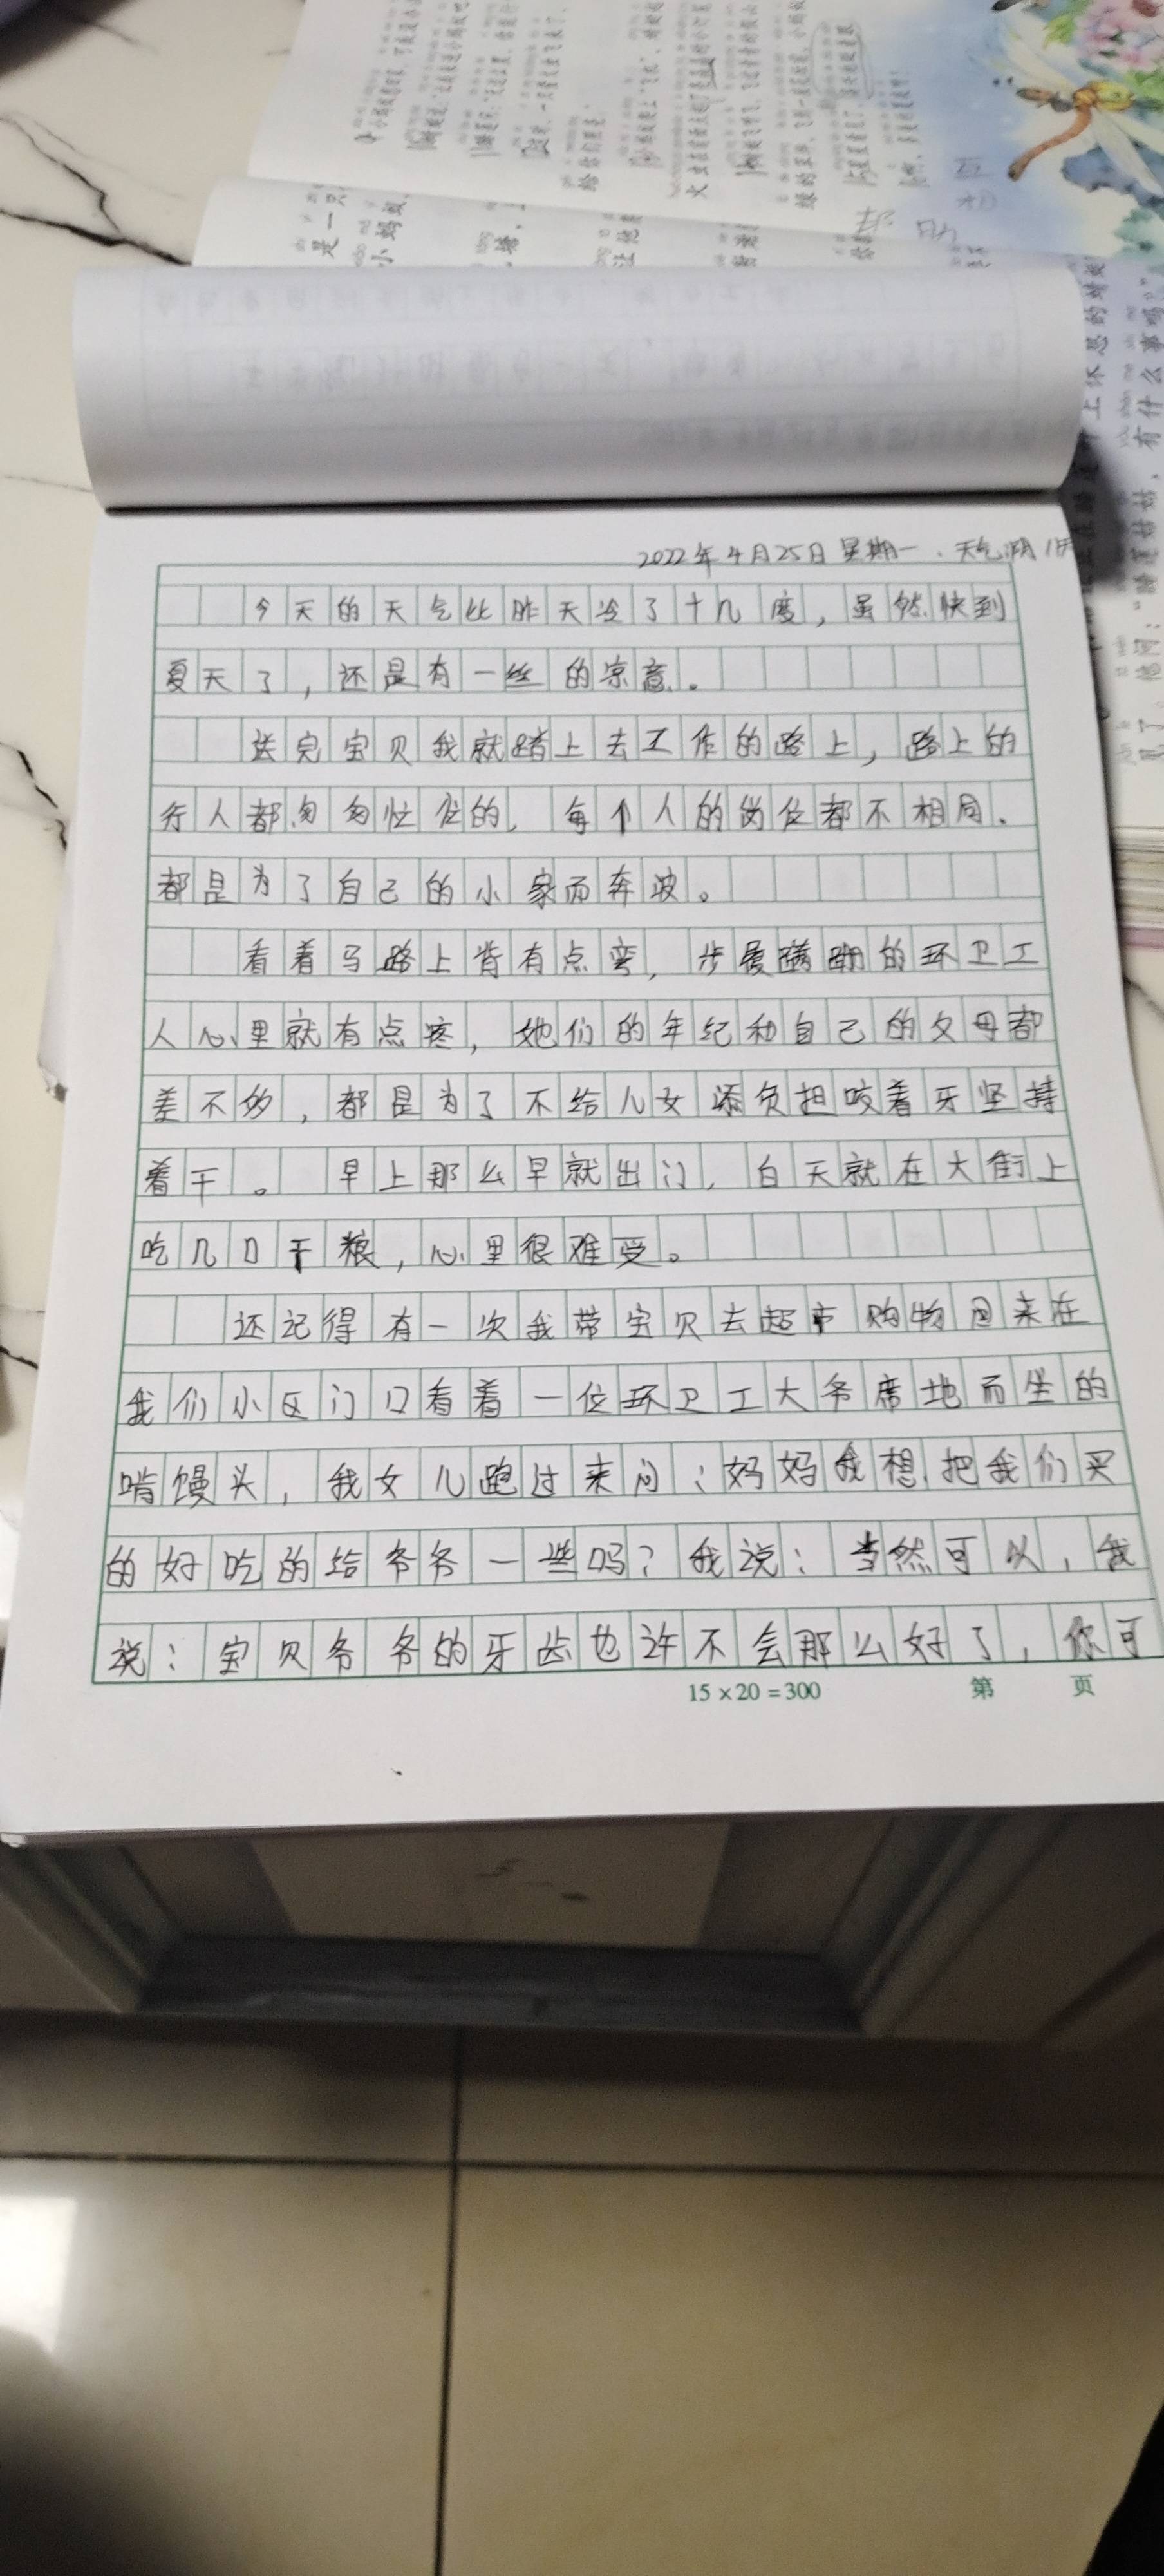 2022年4月25日 星期一、天气
今天的天气比昨天冷了十几度，虽然快到
夏天了，还是有一丝的凉意。
送完宝贝我就踏上去工作的路上，路上的
行人都匆匆忙忙的，每个人的岗位都不相同、
都是为了自己的小家而奔波。
看着马路上背有点弯，步履蹒跚的环卫工
人心里就有点疼，她们的年纪和自己的父母都
差不多，都是为了不给儿女添负担咬着牙坚持
着干。早上那么早就出门，白天就在大街上
吃几口干粮，心里很难受。
还记得有一次我带宝贝去超市购物回来在
我们小区门口看着一位环卫工大爷席地而坐的
啃馒头，我女儿跑过来问：妈妈我想把我们买
的好吃的给爷爷一些吗？我说：当然可以，我
说：宝贝爷爷的牙齿也许不会那么好了，你可
15×20=300 第 页